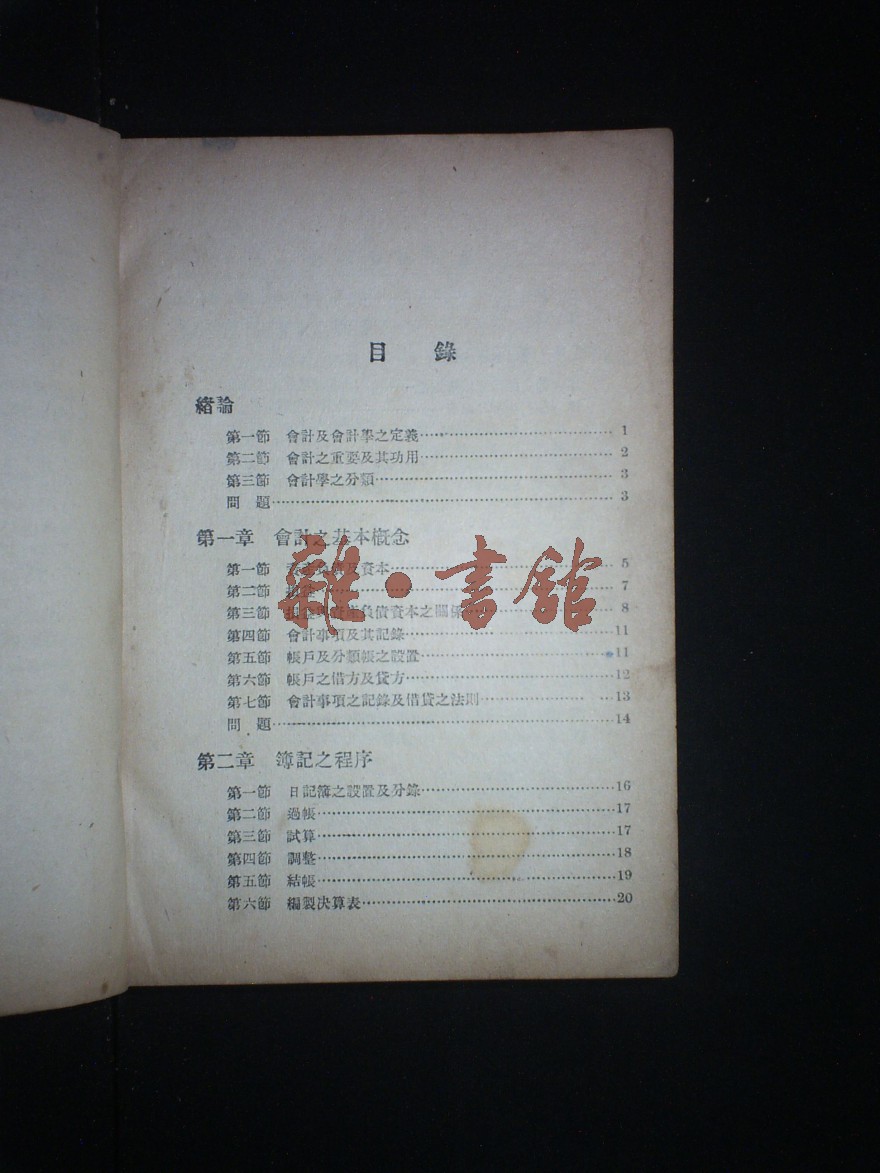 目 錄
緒論
第一節 會計及會計學之定義 1
第二節 會計之重要及其功用 2
第三節 會計學之分類 3
問 題 3
第一章 會計之基本概念
第一節 資產負債及資本 5
第二節 損益 7
第三節 損益與資產負債資本之關係 8
第四節 會計事項及其記錄 11
第五節 帳戶及分類帳之設置 11
第六節 帳戶之借方及貸方 12
第七節 會計事項之記錄及借貸之法則 13
問 題 14
第二章 簿記之程序
第一節 日記簿之設置及分錄 16
第二節 過帳 17
第三節 試算 17
第四節 調整 18
第五節 結帳 19
第六節 編製決算表 20
雜·書館